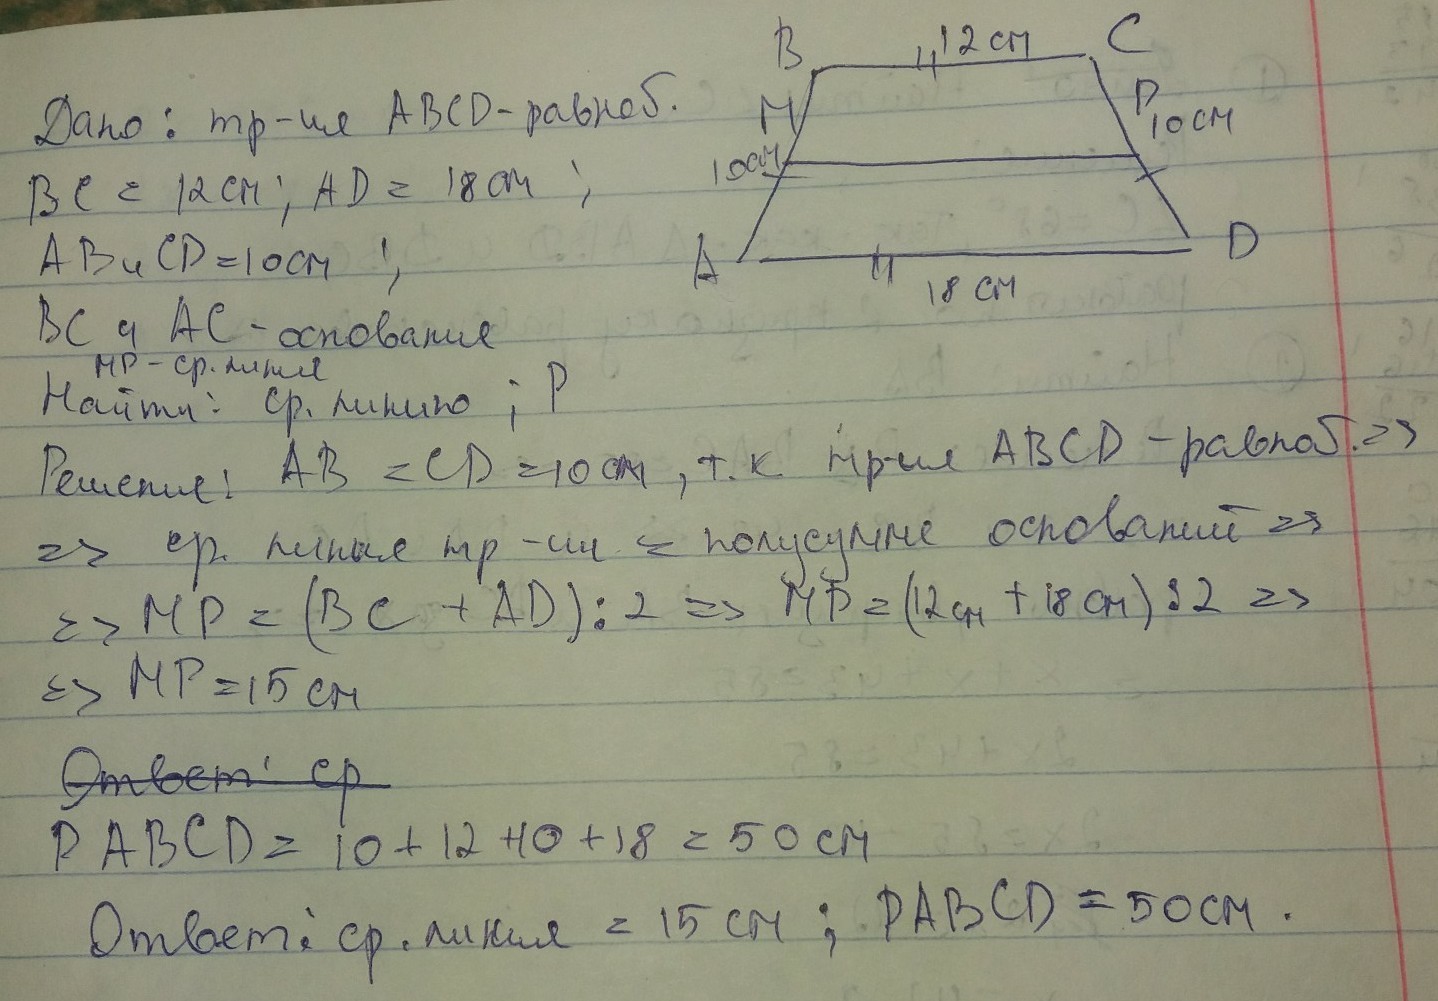 B 12 см C
M P
10 см 10 см
A D
18 см
Дано: тр-ия ABCD-равноб.
BC = 12 см; AD = 18 см;
AB и CD = 10 см;
BC и AC - основания
MP - ср. линия
Найти: ср. линию; P
Решение: AB = CD = 10 см, т.к тр-ия ABCD - равноб. =>
=> ср. линия тр-ии = полусумме оснований =>
=> MP = (BC + AD) : 2 => MP = (12 см + 18 см) : 2 =>
=> MP = 15 см
Ответ: ср
P ABCD = 10 + 12 + 10 + 18 = 50 см
Ответ: ср. линия = 15 см; PABCD = 50 см.